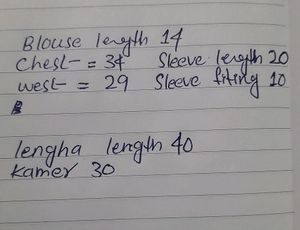 Blouse length 14
chest = 34 Sleeve length 20
west = 29 Sleeve fiting 10
lengha length 40
Kamer 30